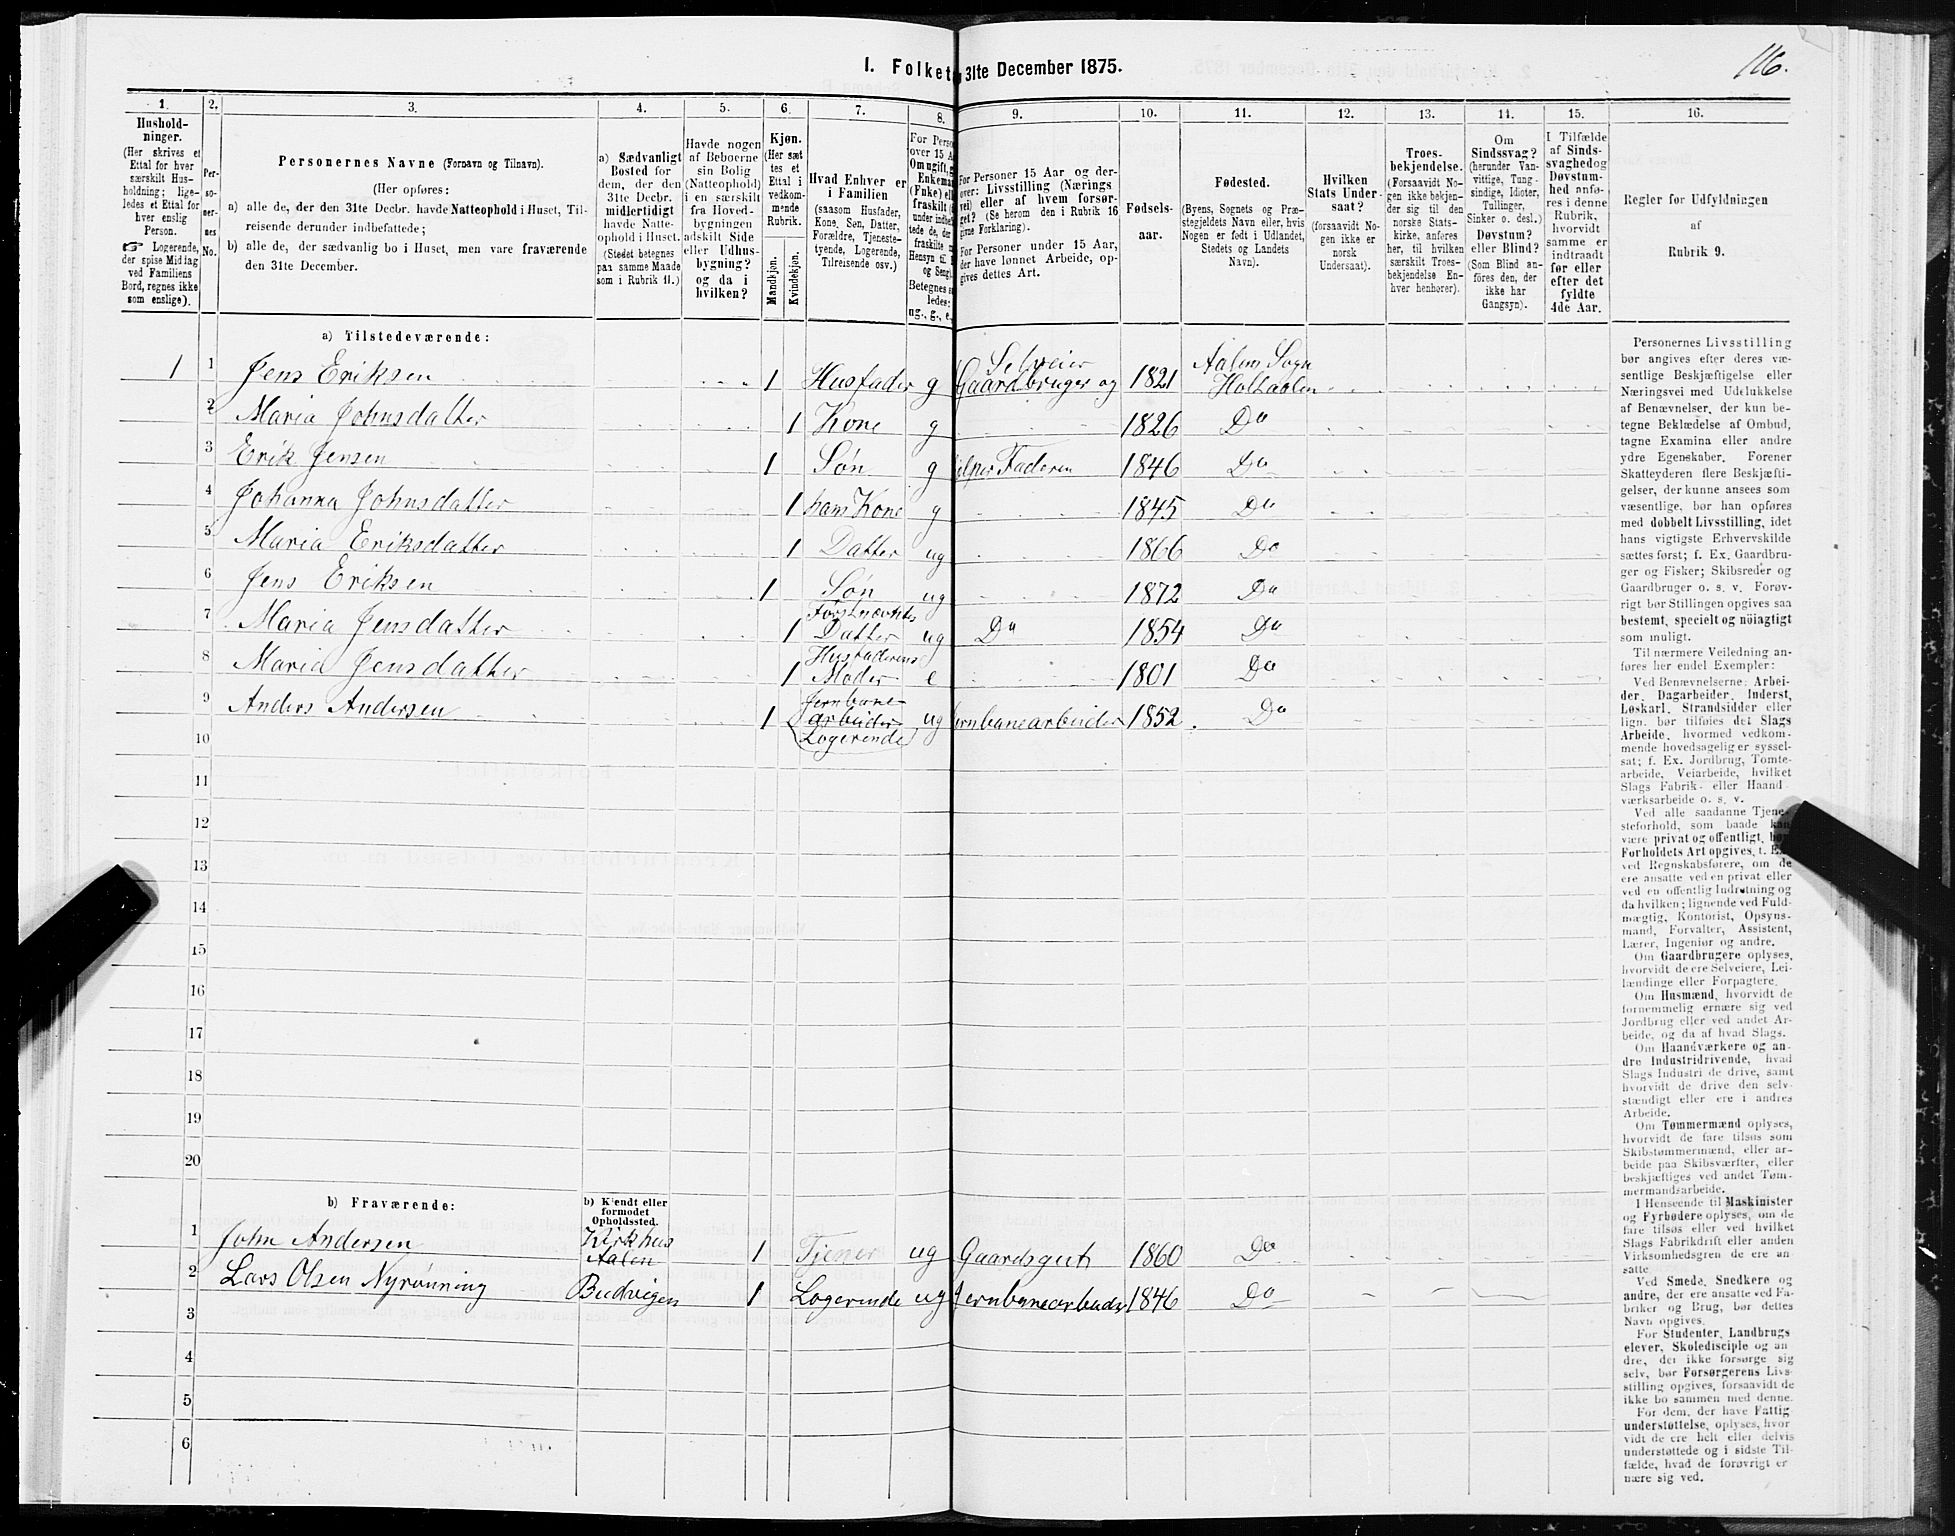 116.
I. Folket 31te December 1875.
1.
2.
3.
4.
5.
6.
7.
8.
9.
10.
11.
12.
13.
14.
15.
16.
Hushold-
ninger.
(Her skrives et
Ettal for hver
særskilt Hus-
holdning; lige-
ledes et Ettal for
hver enslig
Person.
☞ Logerende,
der spise Middag
ved Familiens
Bord, regnes ikke
som enslige).
Per-
so-
ner-
nes
No.
Personernes Navne (Fornavn og Tilnavn).
(Her opføres:
a) alle de, der den 31te Decbr. havde Natteophold i Huset, Til-
reisende derunder indbefattede;
b) alle de, der sædvanlig bo i Huset, men vare fraværende
den 31te December.
a) Sædvanligt
Bosted for
dem, der den
31te Decbr.
midlertidigt
havde Natte-
ophold i Huset.
(Stedet betegnes
paa samme Maade
som i Rubrik 11.)
Havde nogen
af Beboerne
sin Bolig
(Natteophold)
i en særskilt
fra Hoved-
bygningen
adskilt Side
eller Udhus-
bygning?
og da i
hvilken?
Kjøn.
(Her sæt
tes et
Ettal i
vedkom-
mende
Rubrik.
Mandkjøn.
Kvindekjøn.
Hvad Enhver er
i Familien
(saasom Husfader,
Kone, Søn, Datter,
Forældre, Tjeneste-
tyende, Logerende,
Tilreisende osv.)
For Perso
over 15 A
Om ugift, g
Enkema
(Fnke) ell
fraskilt
under indbef
tede de, der
fraskilte
Hensyn til
og Seng
Betegnes s
ledes:
ug., g., e.
For Personer 15 Aar og der-
over: Livsstilling (Nærings
vei) eller af hvem forsør-
get? (Se herom den i Rubrik 16
givne Forklaring).
For Personer under 15 Aar,
der have lønnet Arbeide, op-
gives dettes Art.
Fødsels-
aar.
Fødested.
(Byens, Sognets og Præ-
stegjeldets Navn eller, hvis
Nogen er født i Udlandet,
Stedets og Landets
Navn).
Hvilken
Stats Under-
saat?
(forsaavidt No-
gen ikke er
norsk
Undersaat).
Troes-
bekjendelse.
(Forsaavidt No-
gen ikke bekjen-
der sig til den
norske Stats-
kirke, anføres
her, til hvilken
særskilt Troes-
bekjendelse En-
hver henhører).
Om
Sindssvag?
(herunder Van-
vittige, Tung-
sindige, Idioter,
Tullinger,
Sinker o. desl.)
Døvstum?
eller Blind?
(Som Blind an-
føres den, der
ikke har
Gangsyn).
I Tilfælde
af Sinds-
svaghed og
Døvstum-
hed anfø-
res i denne
Rubrik,
hvorvidt
samme er
indtraadt
før eller
efter det
fyldte
4de Aar.
Regler for Udfyldningen
af
Rubrik 9.
a) Tilstedeværende:
1 1 Jens Eriksen 1 Husfader g Selveier Gaardbruger og 1821 Aalens Sogn Holtaalen
2 Maria Johnsdatter 1 Kone g 1826 Do
3 Erik Jensen 1 Søn g Faderen 1846 Do
4 Johanna Johnsdatter 1 hans Kone g 1845 Do
5 Maria Eriksdatter 1 Datter ug 1866 Do
6 Jens Eriksen 1 Søn ug 1872 Do
7 Maria Jensdatter 1 Førstnævntes Datter ug Do 1854 Do
8 Maria Jensdatter 1 Husfaderens Moder e 1801 Do
9 Anders Andersen 1 Jernbane arbeider (Logerende) ug Jernbanearbeider 1852. Do
10
11
12
13
14
15
16
17
18
19
20
b) Fraværende:
b) Kjendt eller
formodet
Opholdssted.
1 John Andersen Kirkhus Aalen 1 Tjener ug Gaardsgut 1860 Do
2 Lars Olsen Nyrønning Budvigen 1 Logerende ug Jernbanearbeider 1846 Do
3
4
5
6
Personernes Livsstilling
bør angives efter deres væ-
sentlige Beskjæftigelse eller
Næringsvei med Udelukkelse
af Benævnelser, der kun be-
tegne Beklædelse af Ombud,
tagne Examina eller andre
ydre Egenskaber. Forener
Skatteyderen flere Beskjæfti-
gelser, der kunne ansees som
væsentlige, bør han opføres
med dobbelt Livsstilling, idet
hans vigtigste Erhvervskilde
sættes først; f. Ex. Gaardbru-
ger og Fisker; Skibsreder og
Gaardbruger o. s. v. Forøv-
rigt bør Stillingen opgives saa
bestemt, specielt og nøiagtigt
som muligt.
Til nærmere Veiledning an-
føres her endel Exempler:
Ved Benævnelserne: Arbei-
der, Dagarbeider, Inderst,
Løskarl, Strandsidder eller
lign. bør tilføies det Slags
Arbeide, hvormed vedkom-
mende hovedsagelig er syssel-
sat; f. Ex. Jordbrug, Tomte-
arbeide, Veiarbeide, hvilket
Slags Fabrik- eller Haand-
værksarbeide o. s. v.
Ved alle saadanne Tjene-
steforhold, som baade kan
være privat og offentligt, bør
Forholdets Art opgives, t. Ex.
ved Regnskabsførere, om de
ere ansatte ved en privat eller
ved en offentlig Indretning og
da hvilken; lignende ved Fuld-
mægtig, Kontorist, Opsyns-
mand, Forvalter, Assistent,
Lærer, Ingeniør og andre.
Om Gaardbrugere oplyses,
hvorvidt de ere Selveiere, Lei-
lændinge eller Forpagtere.
Om Husmænd, hvorvidt de
fornemmelig ernære sig ved
Jordbrug eller ved andet Ar-
beide, og da af hvad Slags.
Om Haandværkere og an-
dre Industridrivende, hvad
Slags Industri de drive, samt
hvorvidt de drive den selv-
stændigt eller ere i andres
Arbeide.
Om Tømmermænd oplyses,
hvorvidt de fare tilsøs som
Skibstømmermænd, eller ar-
beide paa Skibsværfter, eller
beskjæftiges ved andet Tøm-
mermandsarbeide.
I Henseende til Maskinister
og Fyrbødere oplyses, om de
fare tilsøs eller ved hvilket
Slags Fabrikdrift eller anden
Virksomhedsgren de ere an-
satte
Ved Smede, Snedkere og
andre, der ere ansatte ved Fa-
briker og Brug, bør dettes
Navn opgives.
For Studenter, Landbrugs
elever, Skoledisciple og an
dre, der ikke forsørge sig
selv, bør Forsørgerens Livs-
stilling opgives, forsaavidt de
ikke bo sammen med denne.
For dem, der have Fattig
understøttelse, oplyses, hvor
vidt de ere helt eller delvis
understøttede og i sidste Til-
fælde, hvad de forøvrigt er
nære sig ved.